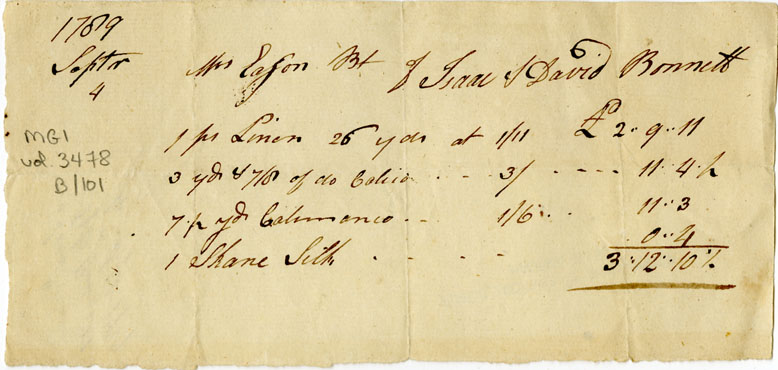 1789
Septr
4
Mrs Eason Bt of Isaac & David Bonnett
1 ps Linen 26 yds at 1/11 £ 2 " 9 " 11
3 yds & 7/8 of do Calico - - 3/ - - - - 11 " 4 ½
7 ½ yds Calimanco - - 1/6 - - 11 " 3
1 Skane Silk - - - - 0 " 4
3 " 12 " 10 ½
MG1
vol. 3478
B/101